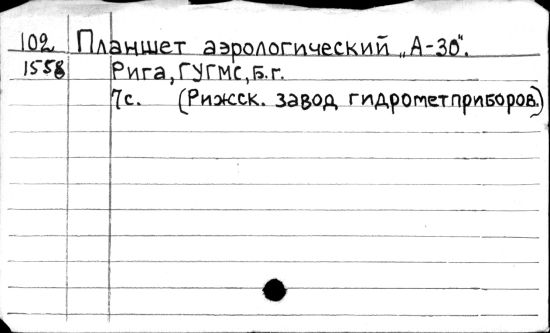 102 Планшет аэрологический „А-30".
1558 Рига, ГУГМС, б.г.
7с. (Рижск. завод гидрометприборов.)